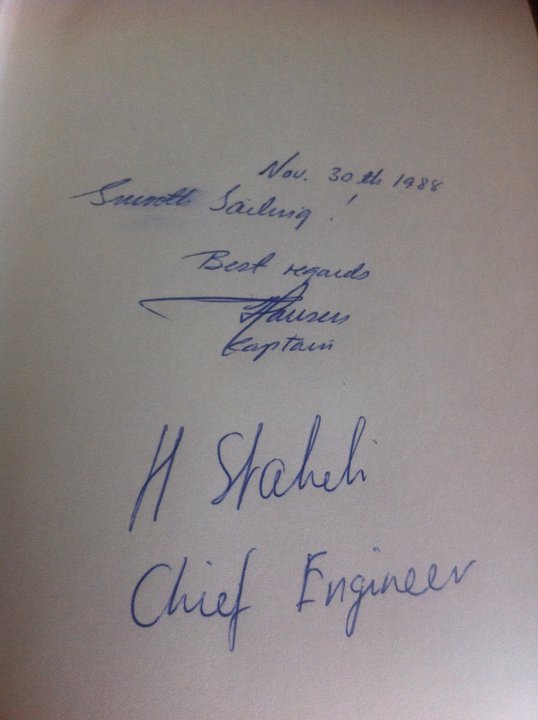 Nov. 30th 1988
Smooth Sailing!
Best regards
Hansen
Kaptain
H Staheli
Chief Engineer